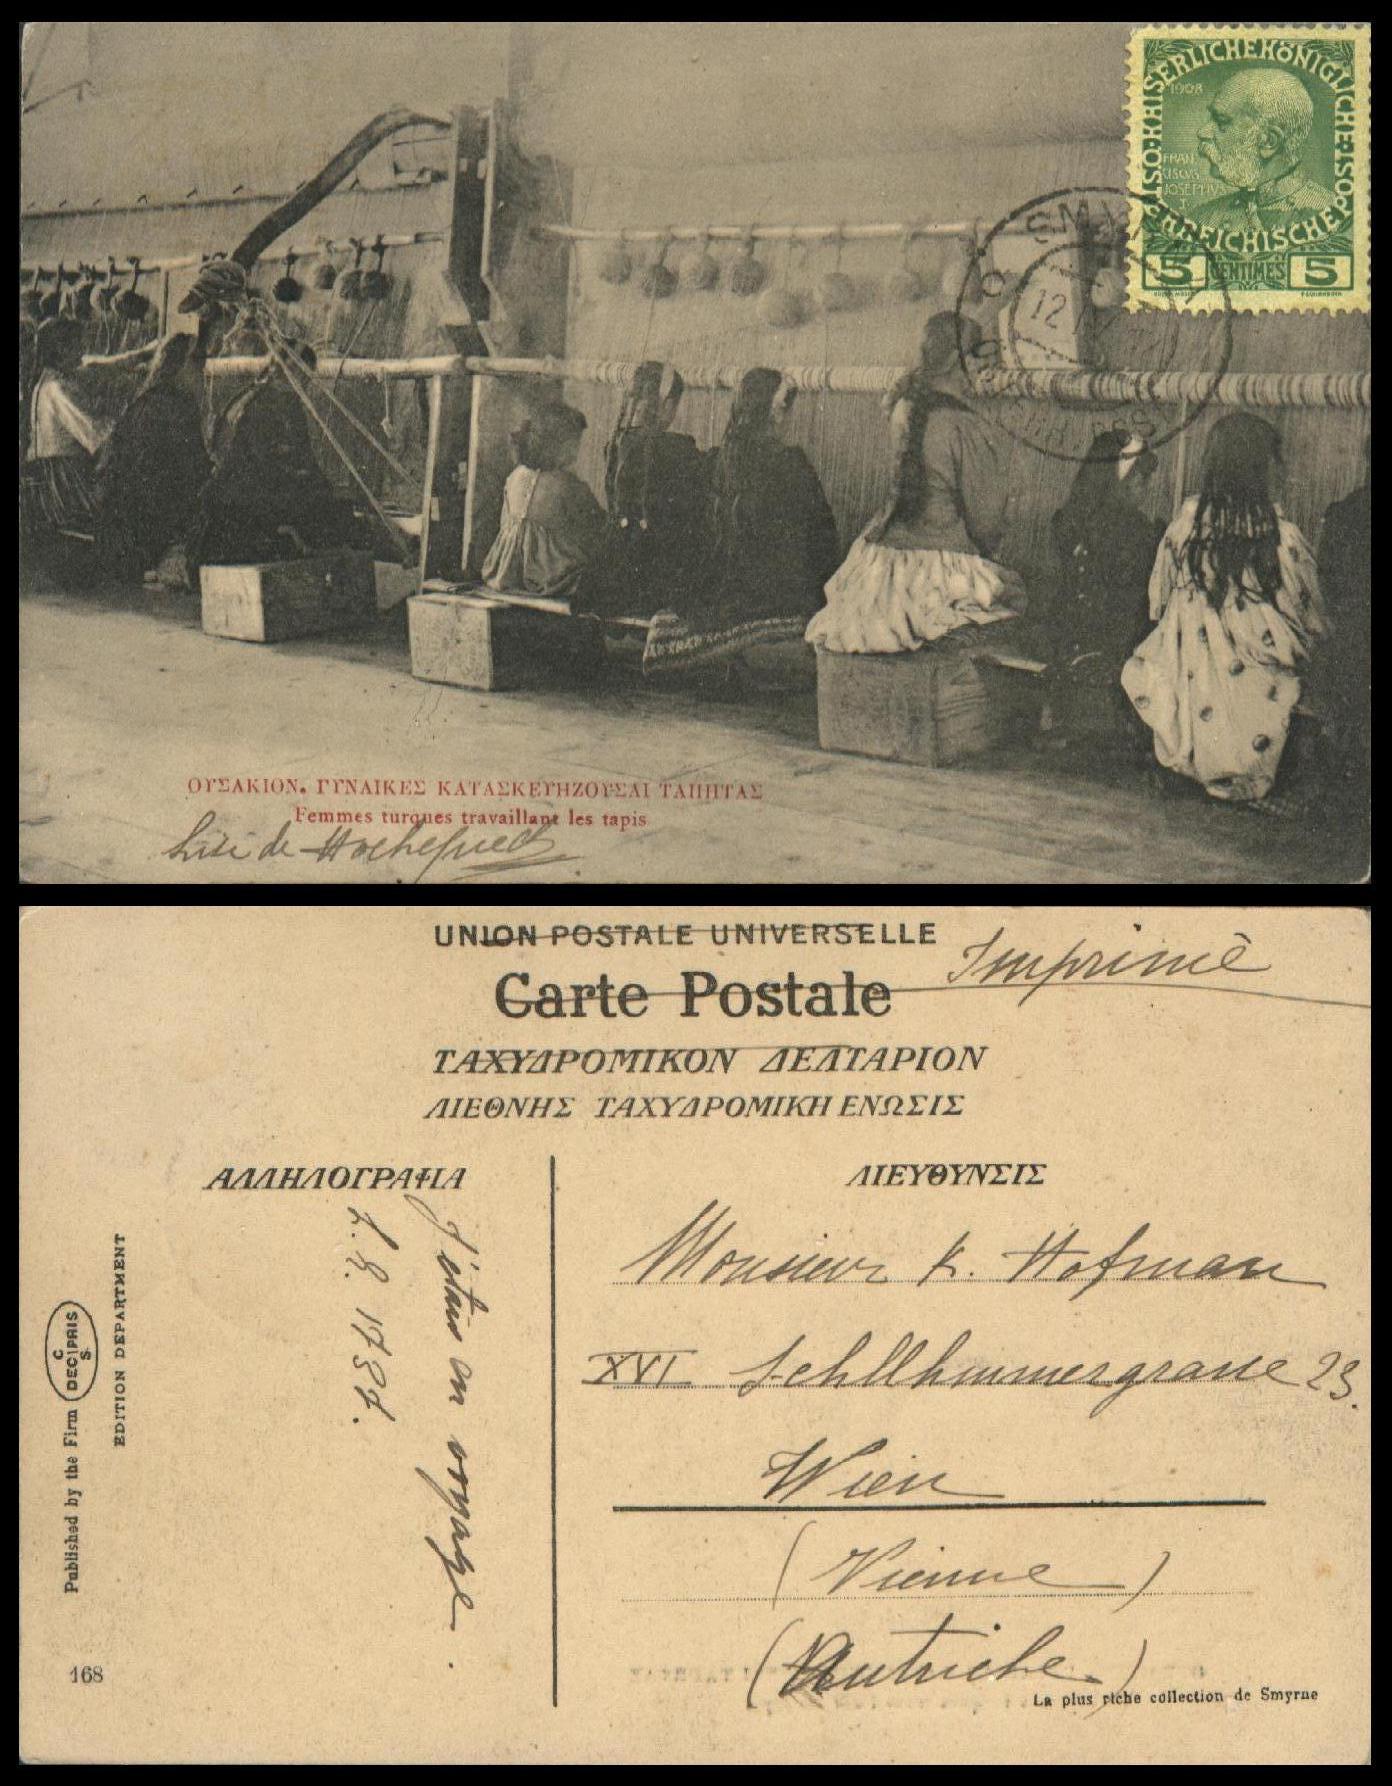 K.K. ÖSTERREICHISCHE POST
KAISERLICHEKÖNIGLICHE
1908
FRAN
CISCVS
JOSEPHVS
I
5 CENTIMES 5
SMYRNE
12
ΟΥΣΑΚΙΟΝ. ΓΥΝΑΙΚΕΣ ΚΑΤΑΣΚΕΥΗΖΟΥΣΑΙ ΤΑΠΗΤΑΣ
Femmes turques travaillant les tapis
UNION POSTALE UNIVERSELLE
Imprimé
Carte Postale
ΤΑΧΥΔΡΟΜΙΚΟΝ ΔΕΛΤΑΡΙΟΝ
ΔΙΕΘΝΗΣ ΤΑΧΥΔΡΟΜΙΚΗ ΕΝΩΣΙΣ
ΑΛΛΗΛΟΓΡΑΦΙΑ
ΔΙΕΥΘΥΝΣΙΣ
J'étais en voyage.
L. 8. 1737.
Monsieur K. Hofman
XVI 23.
Wien
(Vienne)
(Autriche)
La plus riche collection de Smyrne
Published by the Firm C DECIPRIS S.
EDITION DEPARTMENT
168